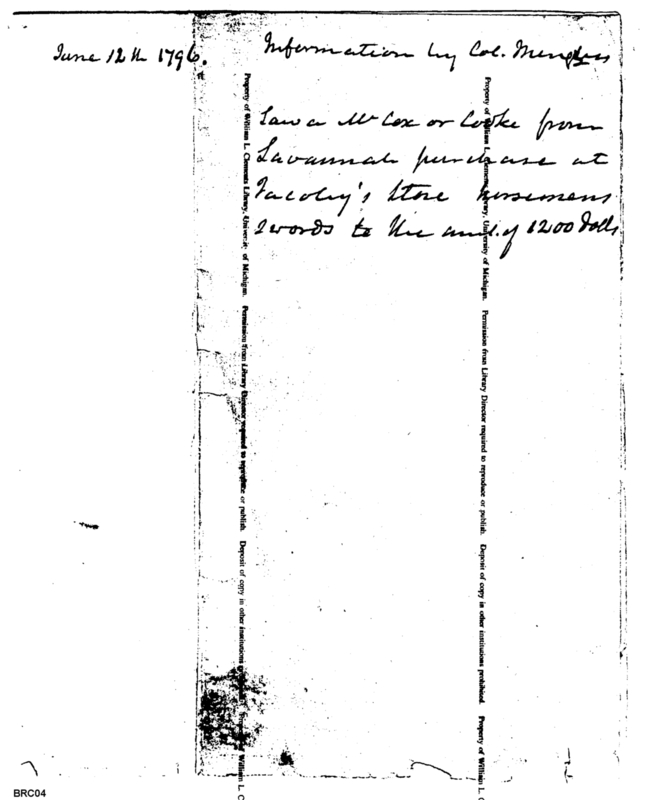 June 12th 1796.
Information by Col. Menges
Saw a Mr Cox or Cooke from
Savannah purchase at
Jacoby's Store horsemens
Swords to the amt. of 1200 Dolls
Property of William L. Clements Library, University of Michigan. Permission from Library Director required to reproduce or publish. Deposit of copy in other institutions William L. C
Property of William L. Clements Library, University of Michigan. Permission from Library Director required to reproduce or publish. Deposit of copy in other institutions prohibited. Property of William L. C
BRC04